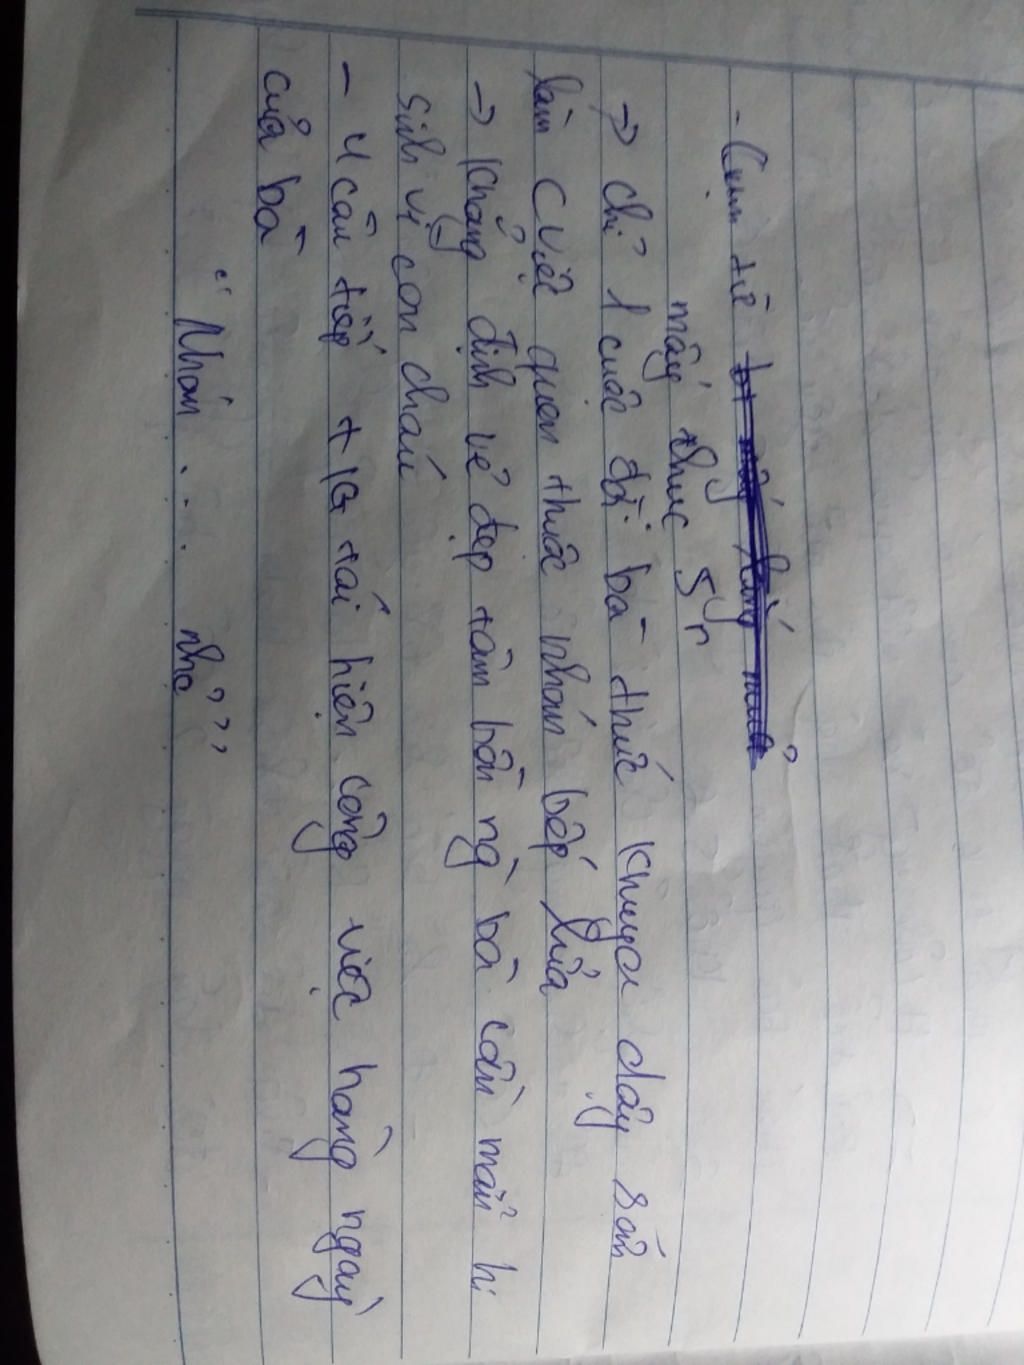 - Cụm từ
mấy chục
→ chỉ 1 cuộc đời bà thức khuya dậy sớm
làm cviệc quen thuộc nhóm bếp lửa
→ Khẳng định vẻ đẹp tâm hồn ng bà cần mẫn hi
sinh vì con cháu
- 4 câu tiếp t/g tái hiện công việc hàng ngày
của bà
"Nhóm ... nhỏ"